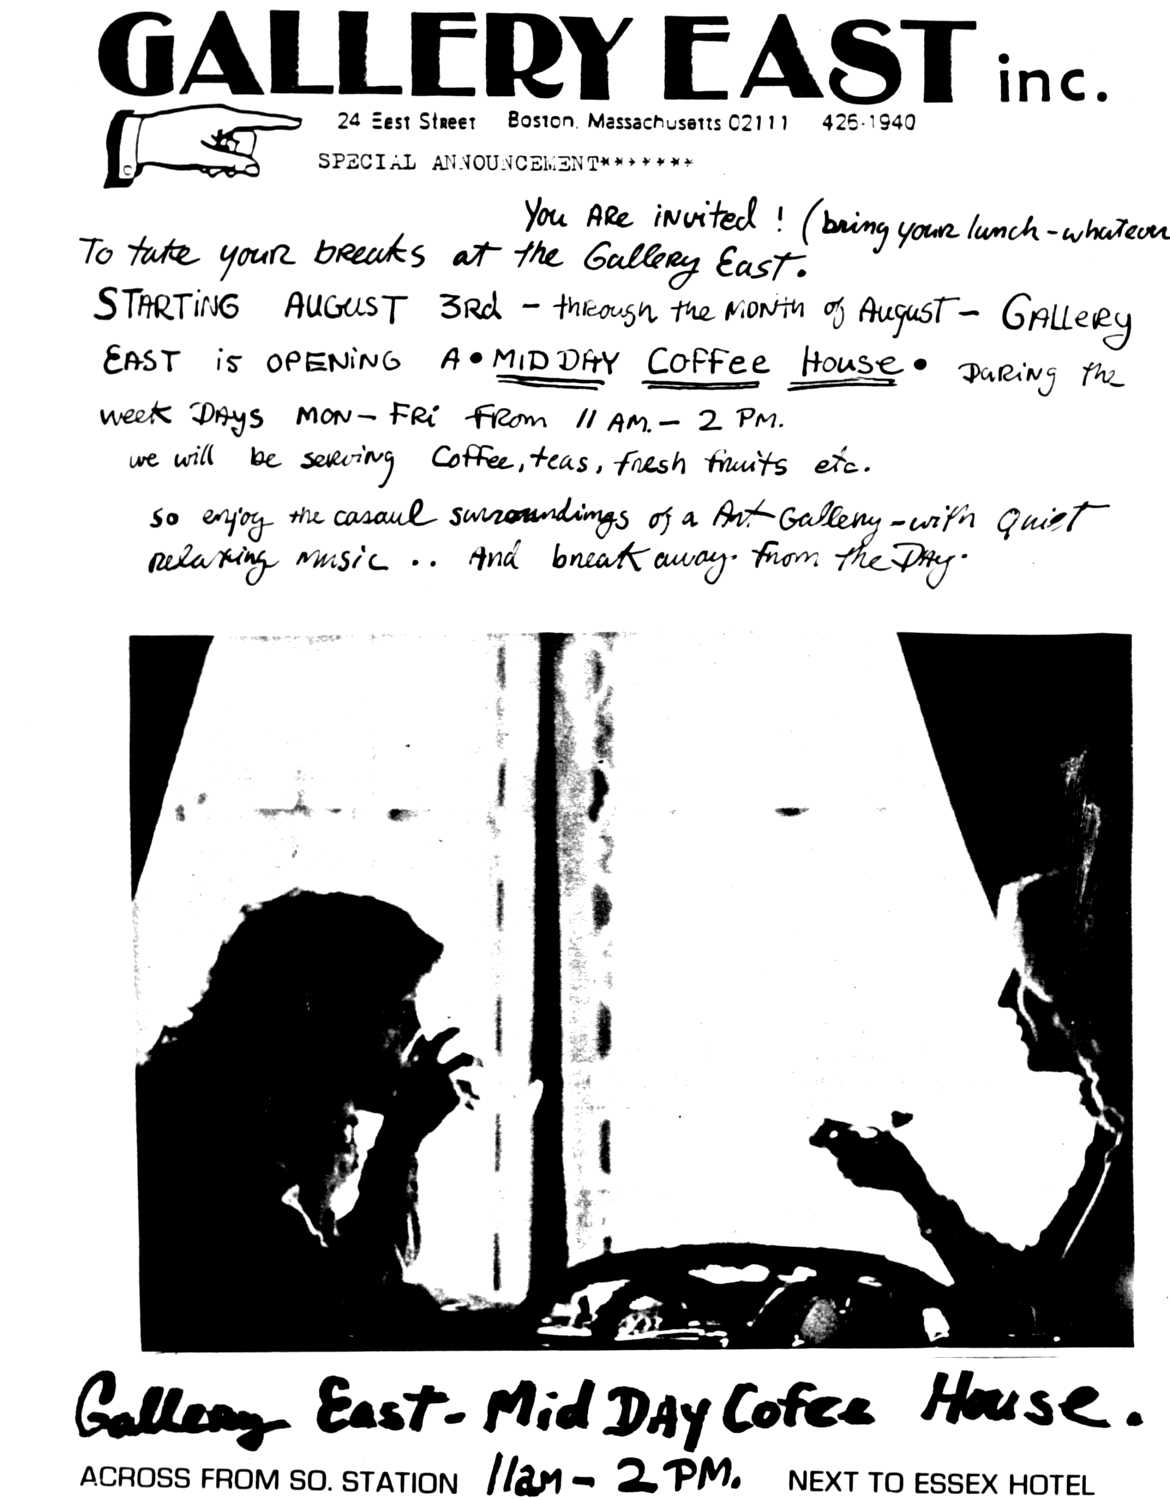 GALLERY EAST inc.
24 East Street Boston, Massachusetts 02111 426-1940
SPECIAL ANNOUNCEMENT*******
You ARe invited! (bring your lunch-whatever
To take your breaks at the Gallery East.
STARTING AUGUST 3Rd - through the MONTH of August - GALLERY
EAST is OPENING A • MID DAY COFFee House • DURING the
week DAYS MON-FRi FRom 11 AM. - 2 PM.
we will be serving Coffee, teas, fresh fruits etc.
so enjoy the casaul surroundings of a Art Gallery - with Quiet
relaxing music .. And break away. from the DAy.
Gallery East- Mid DAy Cofee House.
ACROSS FROM SO. STATION 11am - 2 PM. NEXT TO ESSEX HOTEL